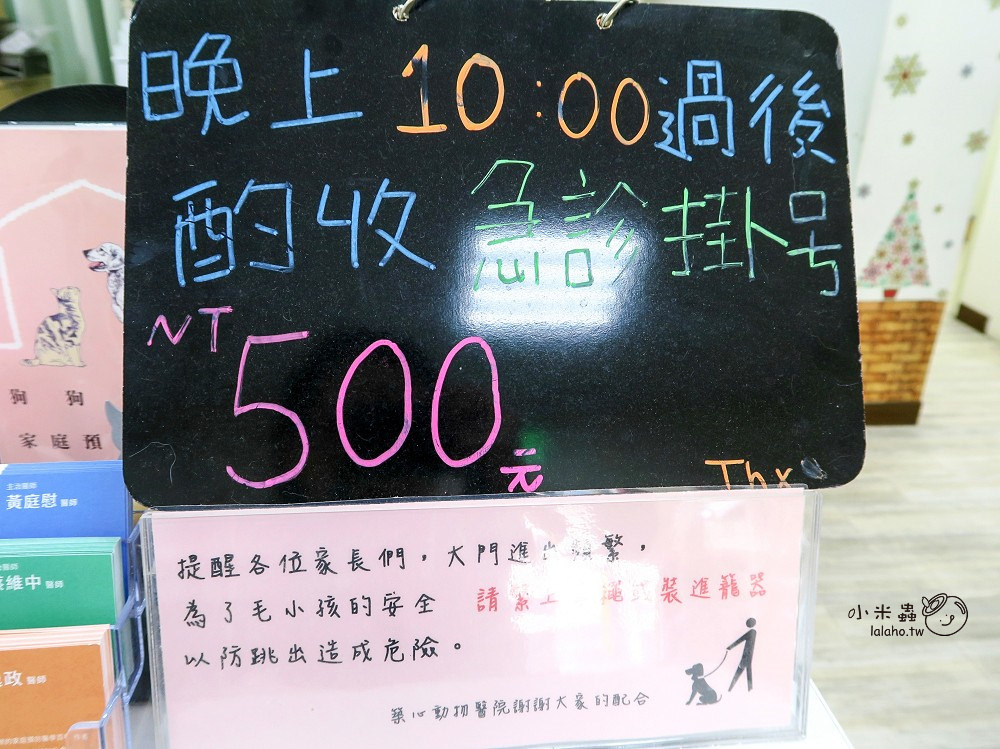 晚上 10:00過後
酌收 急診掛号
NT500元
Thx
提醒各位家長們，大門進出頻繁，
為了毛小孩的安全 請繫上 繩或裝進籠器
以防跳出造成危險。
築心動物醫院謝謝大家的配合
狗 狗
家庭預
主治醫師
黃庭慰 醫師
維中 醫師
政 醫師
小米蟲
lalaho.tw